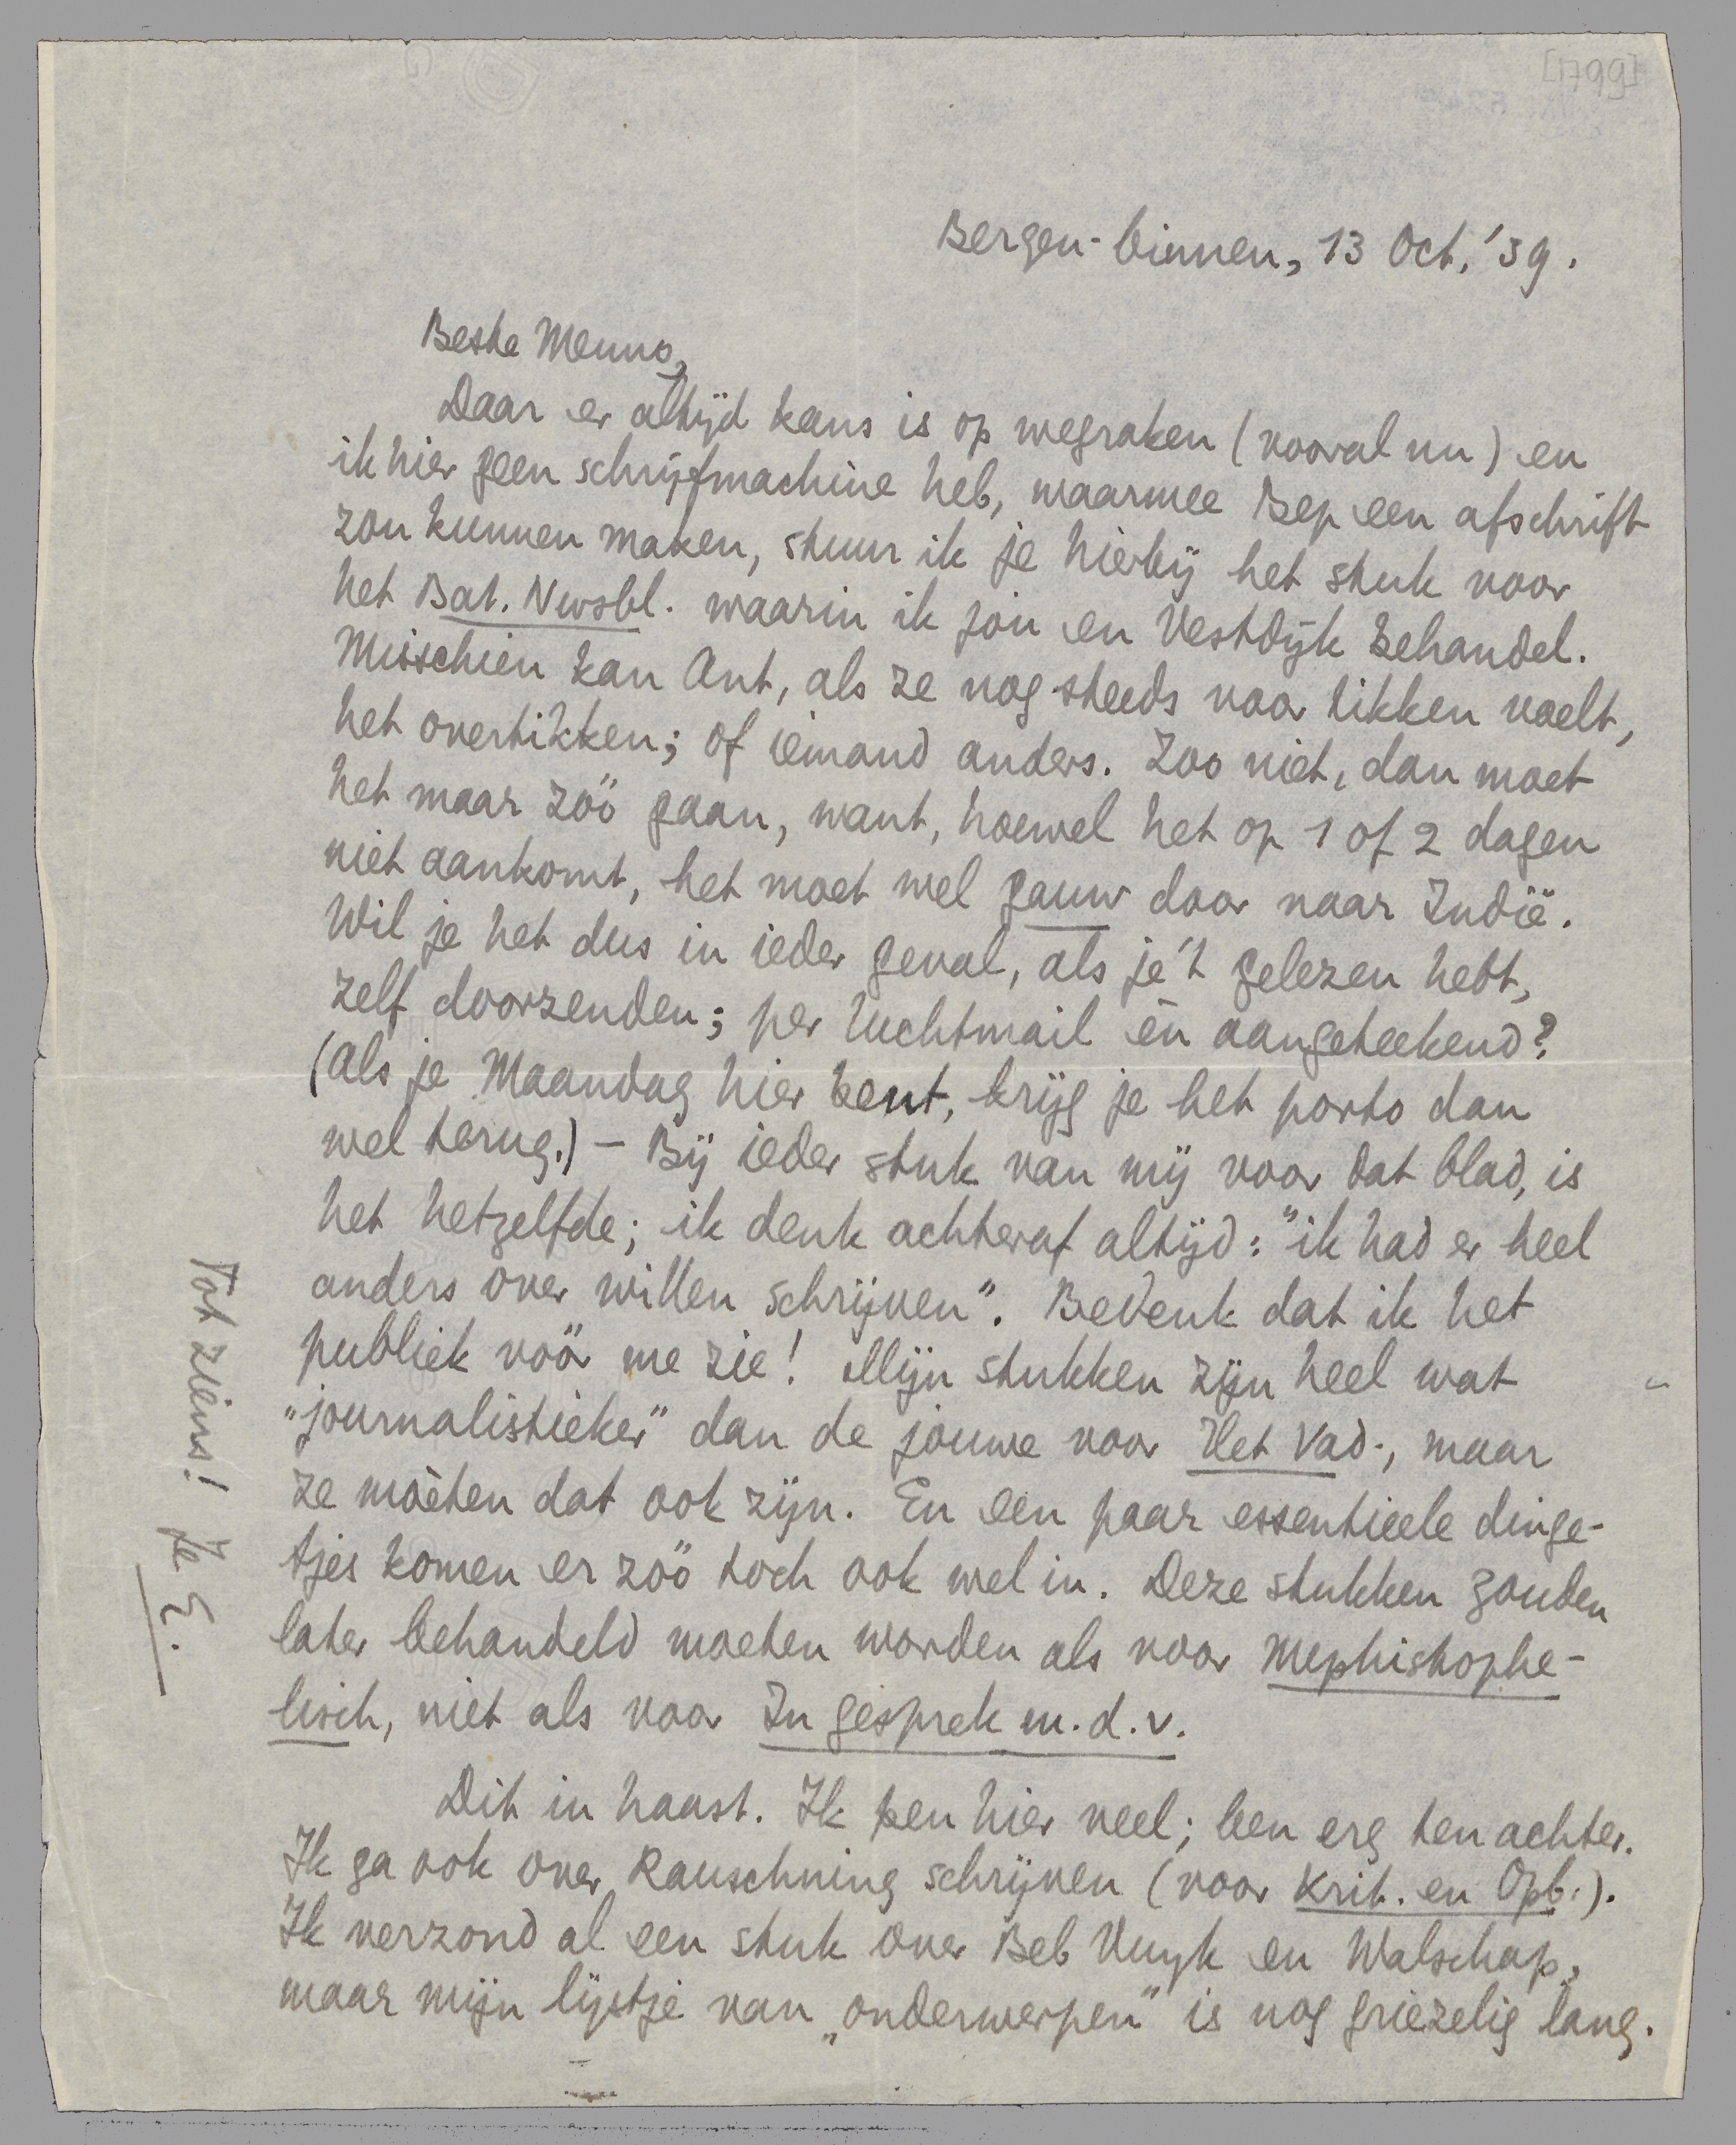 [1799]
Bergen-binnen, 13 Oct. '39.
Beste Menno,
Daar er altijd kans is op wegraken (vooral nu) en
ik hier geen schrijfmachine heb, waarmee Bep een afschrift
zou kunnen maken, stuur ik je hierbij het stuk voor
het Bat. Nwsbl. waarin ik jou en Vestdijk behandel.
Misschien kan Ant, als ze nog steeds voor tikken voelt,
het overtikken; of iemand anders. Zoo niet, dan moet
het maar zóó gaan, want, hoewel het op 1 of 2 dagen
niet aankomt, het moet wel gauw door naar Indië.
Wil je het dus in ieder geval, als je 't gelezen hebt,
zelf doorzenden; per luchtmail èn aangeteekend?
(Als je Maandag hier bent, krijg je het porto dan
wel terug.) – Bij ieder stuk van mij voor dat blad, is
het hetzelfde; ik denk achteraf altijd: "ik had er heel
anders over willen schrijven". Bedenk dat ik het
publiek vóór me zie! Mijn stukken zijn heel wat
„journalistieker" dan de jouwe voor Het Vad., maar
ze mòèten dat ook zijn. En een paar essentieele dinge-
tjes komen er zóó toch ook wel in. Deze stukken zouden
later behandeld moeten worden als voor Mephistophe-
lisch, niet als voor In gesprek m. d. v.
Dit in haast. Ik pen hier veel; ben erg ten achter.
Ik ga ook over Rauschning schrijven (voor Krit. en Opb.).
Ik verzond al een stuk over Beb Vuyk en Walschap,
maar mijn lijstje van „onderwerpen" is nog griezelig lang.
Tot ziens! Je E.